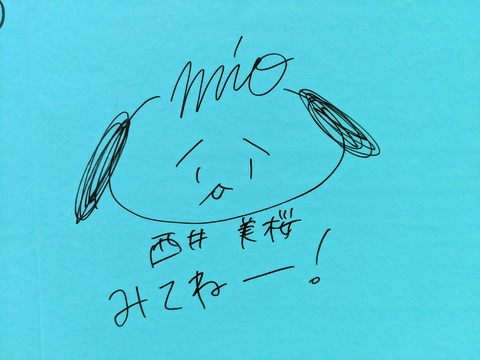 mio
西井 美桜
みてねー!